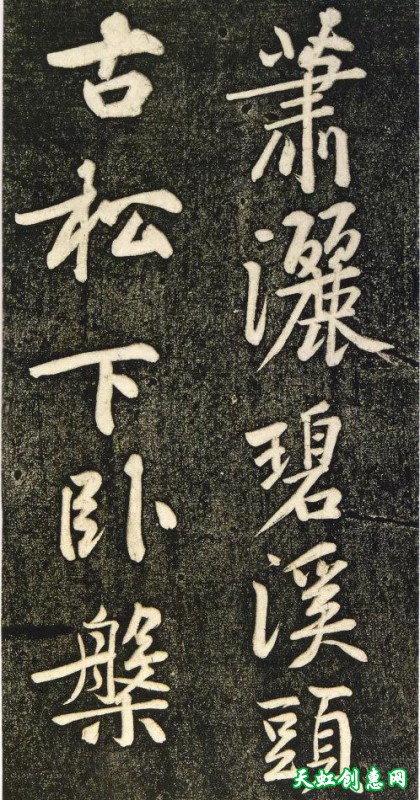 蕭灑碧溪頭
古松下臥槃
天虹创惠网